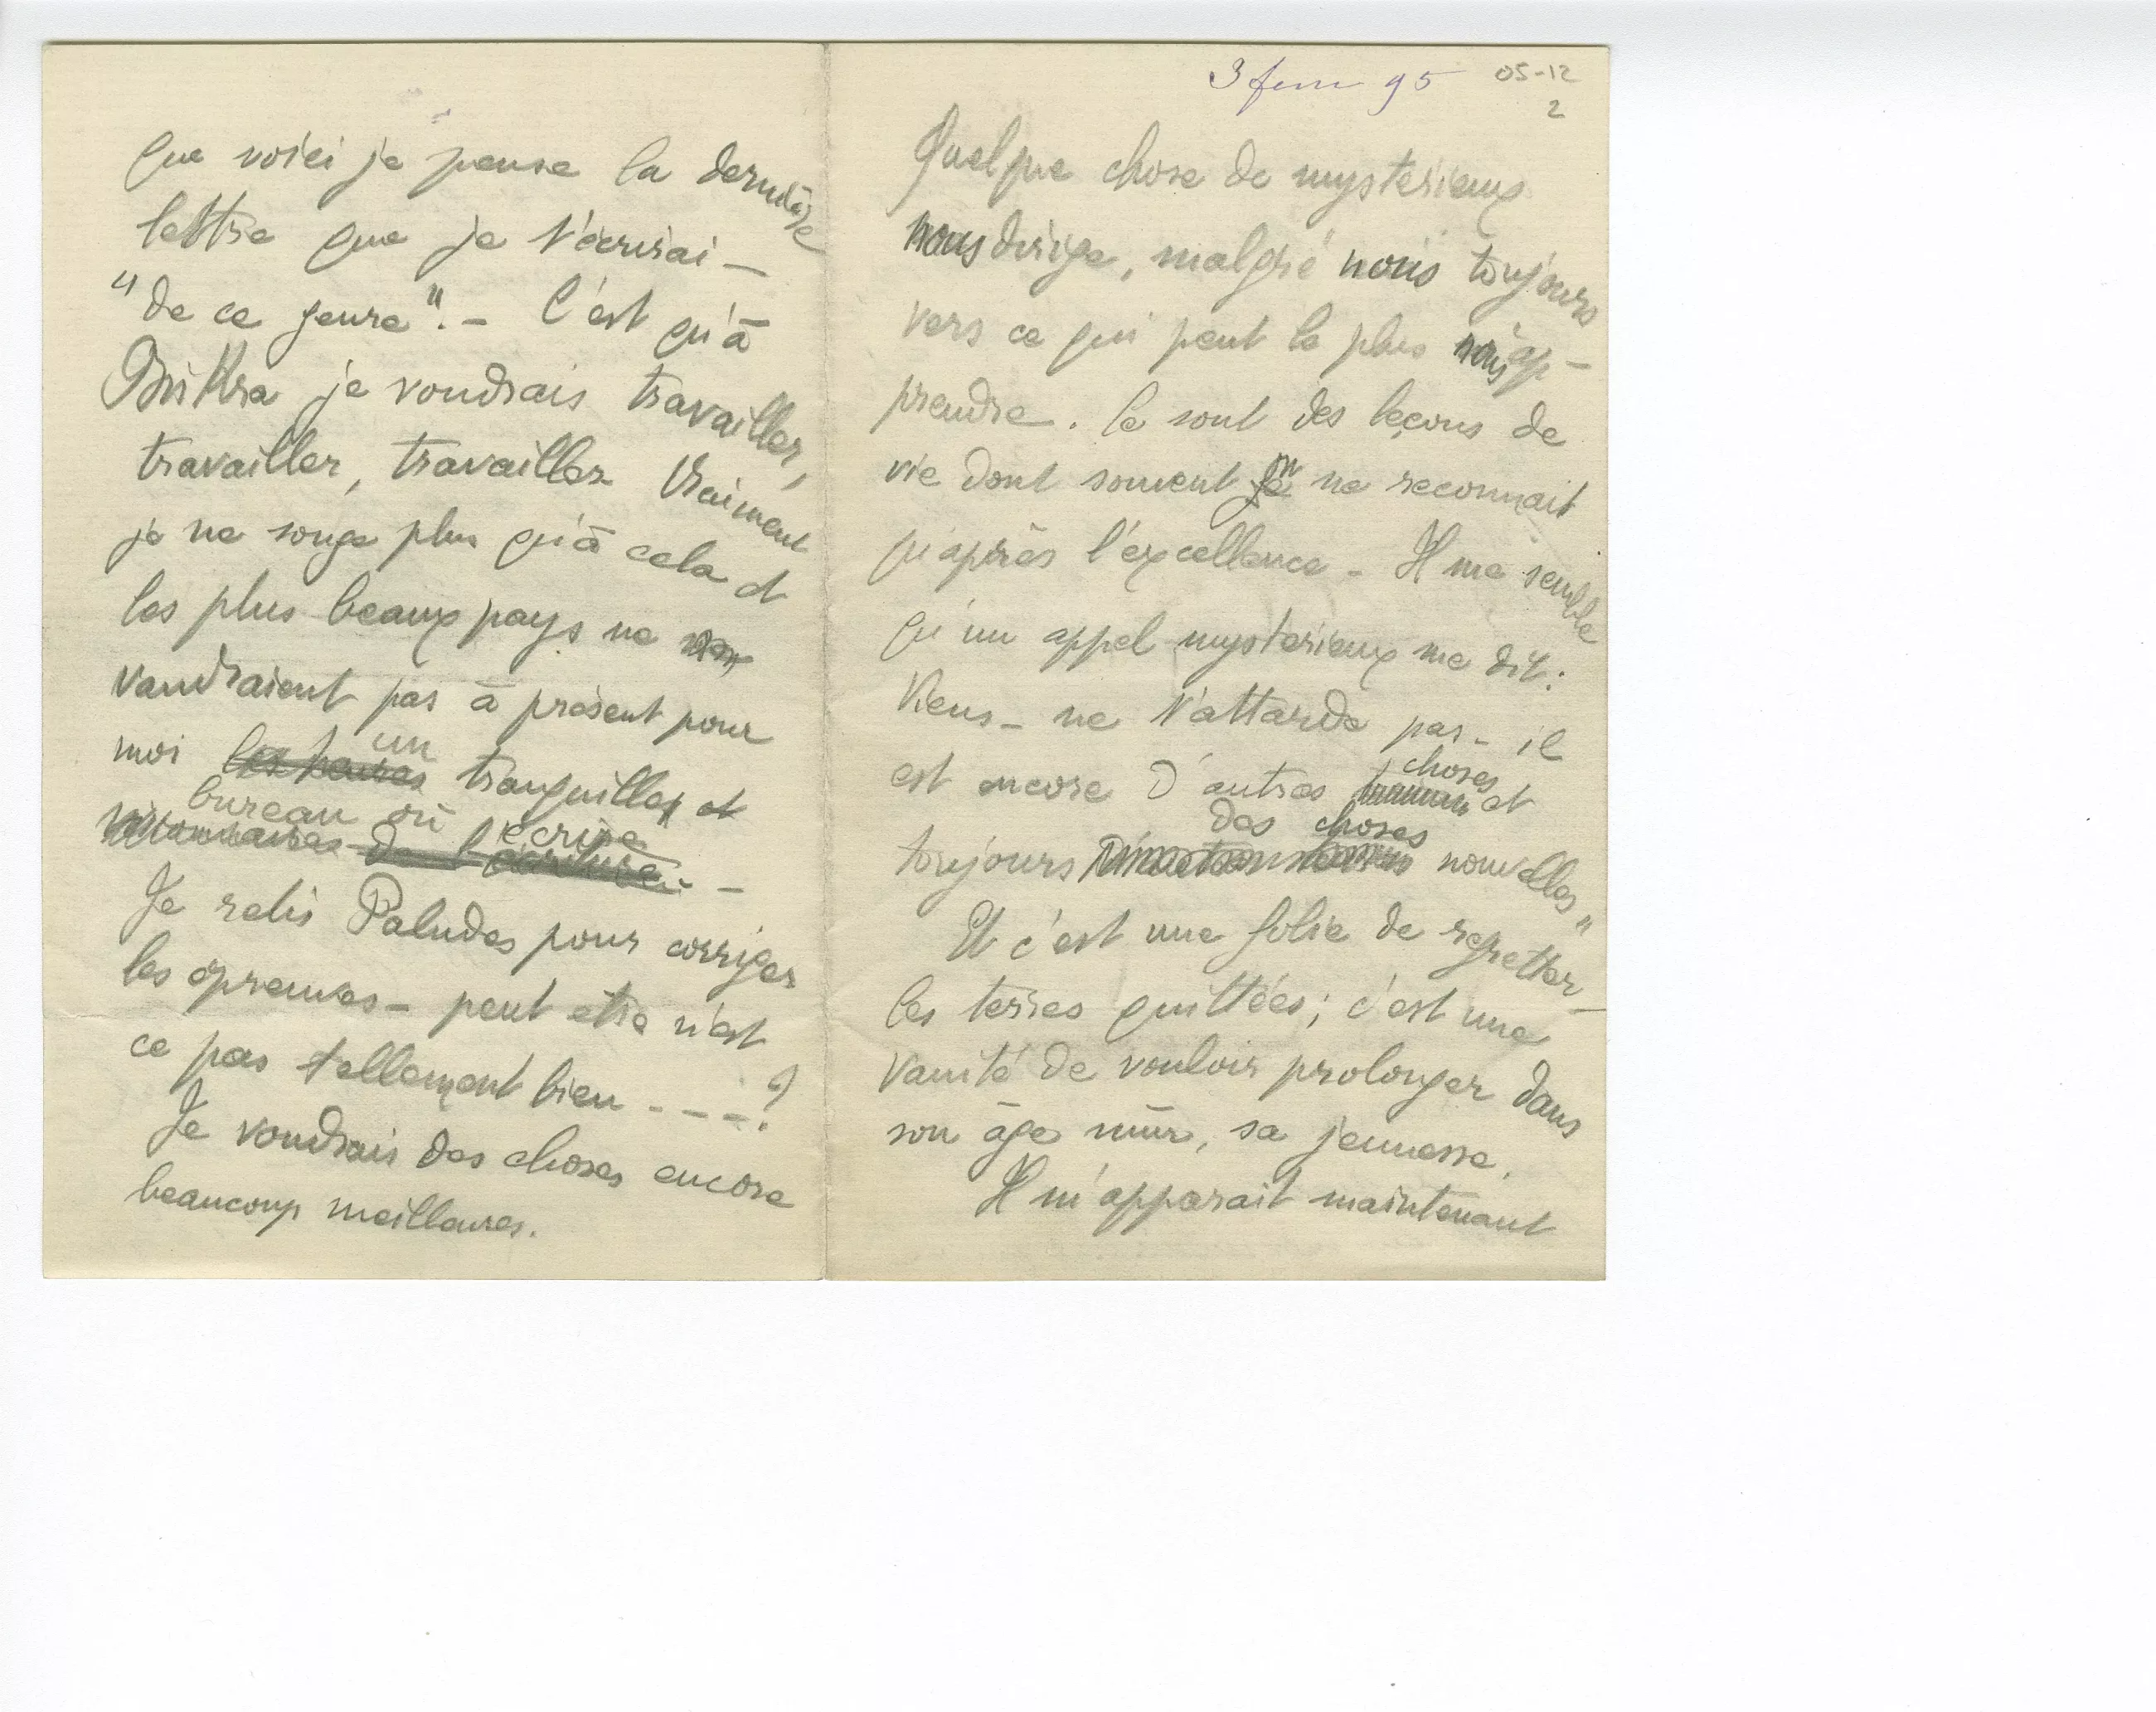 que voici je pense la dernière
lettre que je t'écrirai —
"de ce genre". – C'est qu'à
Biskra je voudrais travailler,
travailler, travailler Vraiment
je ne songe plus qu'à cela et
les plus beaux pays ne
vaudraient pas à présent pour
moi les heures un tranquilles et
bureau où
de l'écriture j'écrive –
Je relis Paludes pour corriger
les épreuves – peut etre n'est
ce pas tellement bien - - - ?
Je voudrais des choses encore
beaucoup meilleures.
3 fevr 95 05-12
2
Quelque chose de mysterieux
nous dirige, malgré nous toujours
vers ce qui peut le plus nous ap-
prendre. Ce sont des leçons de
vie dont souvent on ne reconnait
qu'après l'excellence – Il me semble
qu'un appel mysterieux me dit:
Viens – ne t'attarde pas – il
est encore d'autres choses et
toujours des choses nouvelles"
Et c'est une folie de regretter
les terres quittées; c'est une
vanité de vouloir prolonger dans
son âge mûr, sa jeunesse.
Il m'apparait maintenant